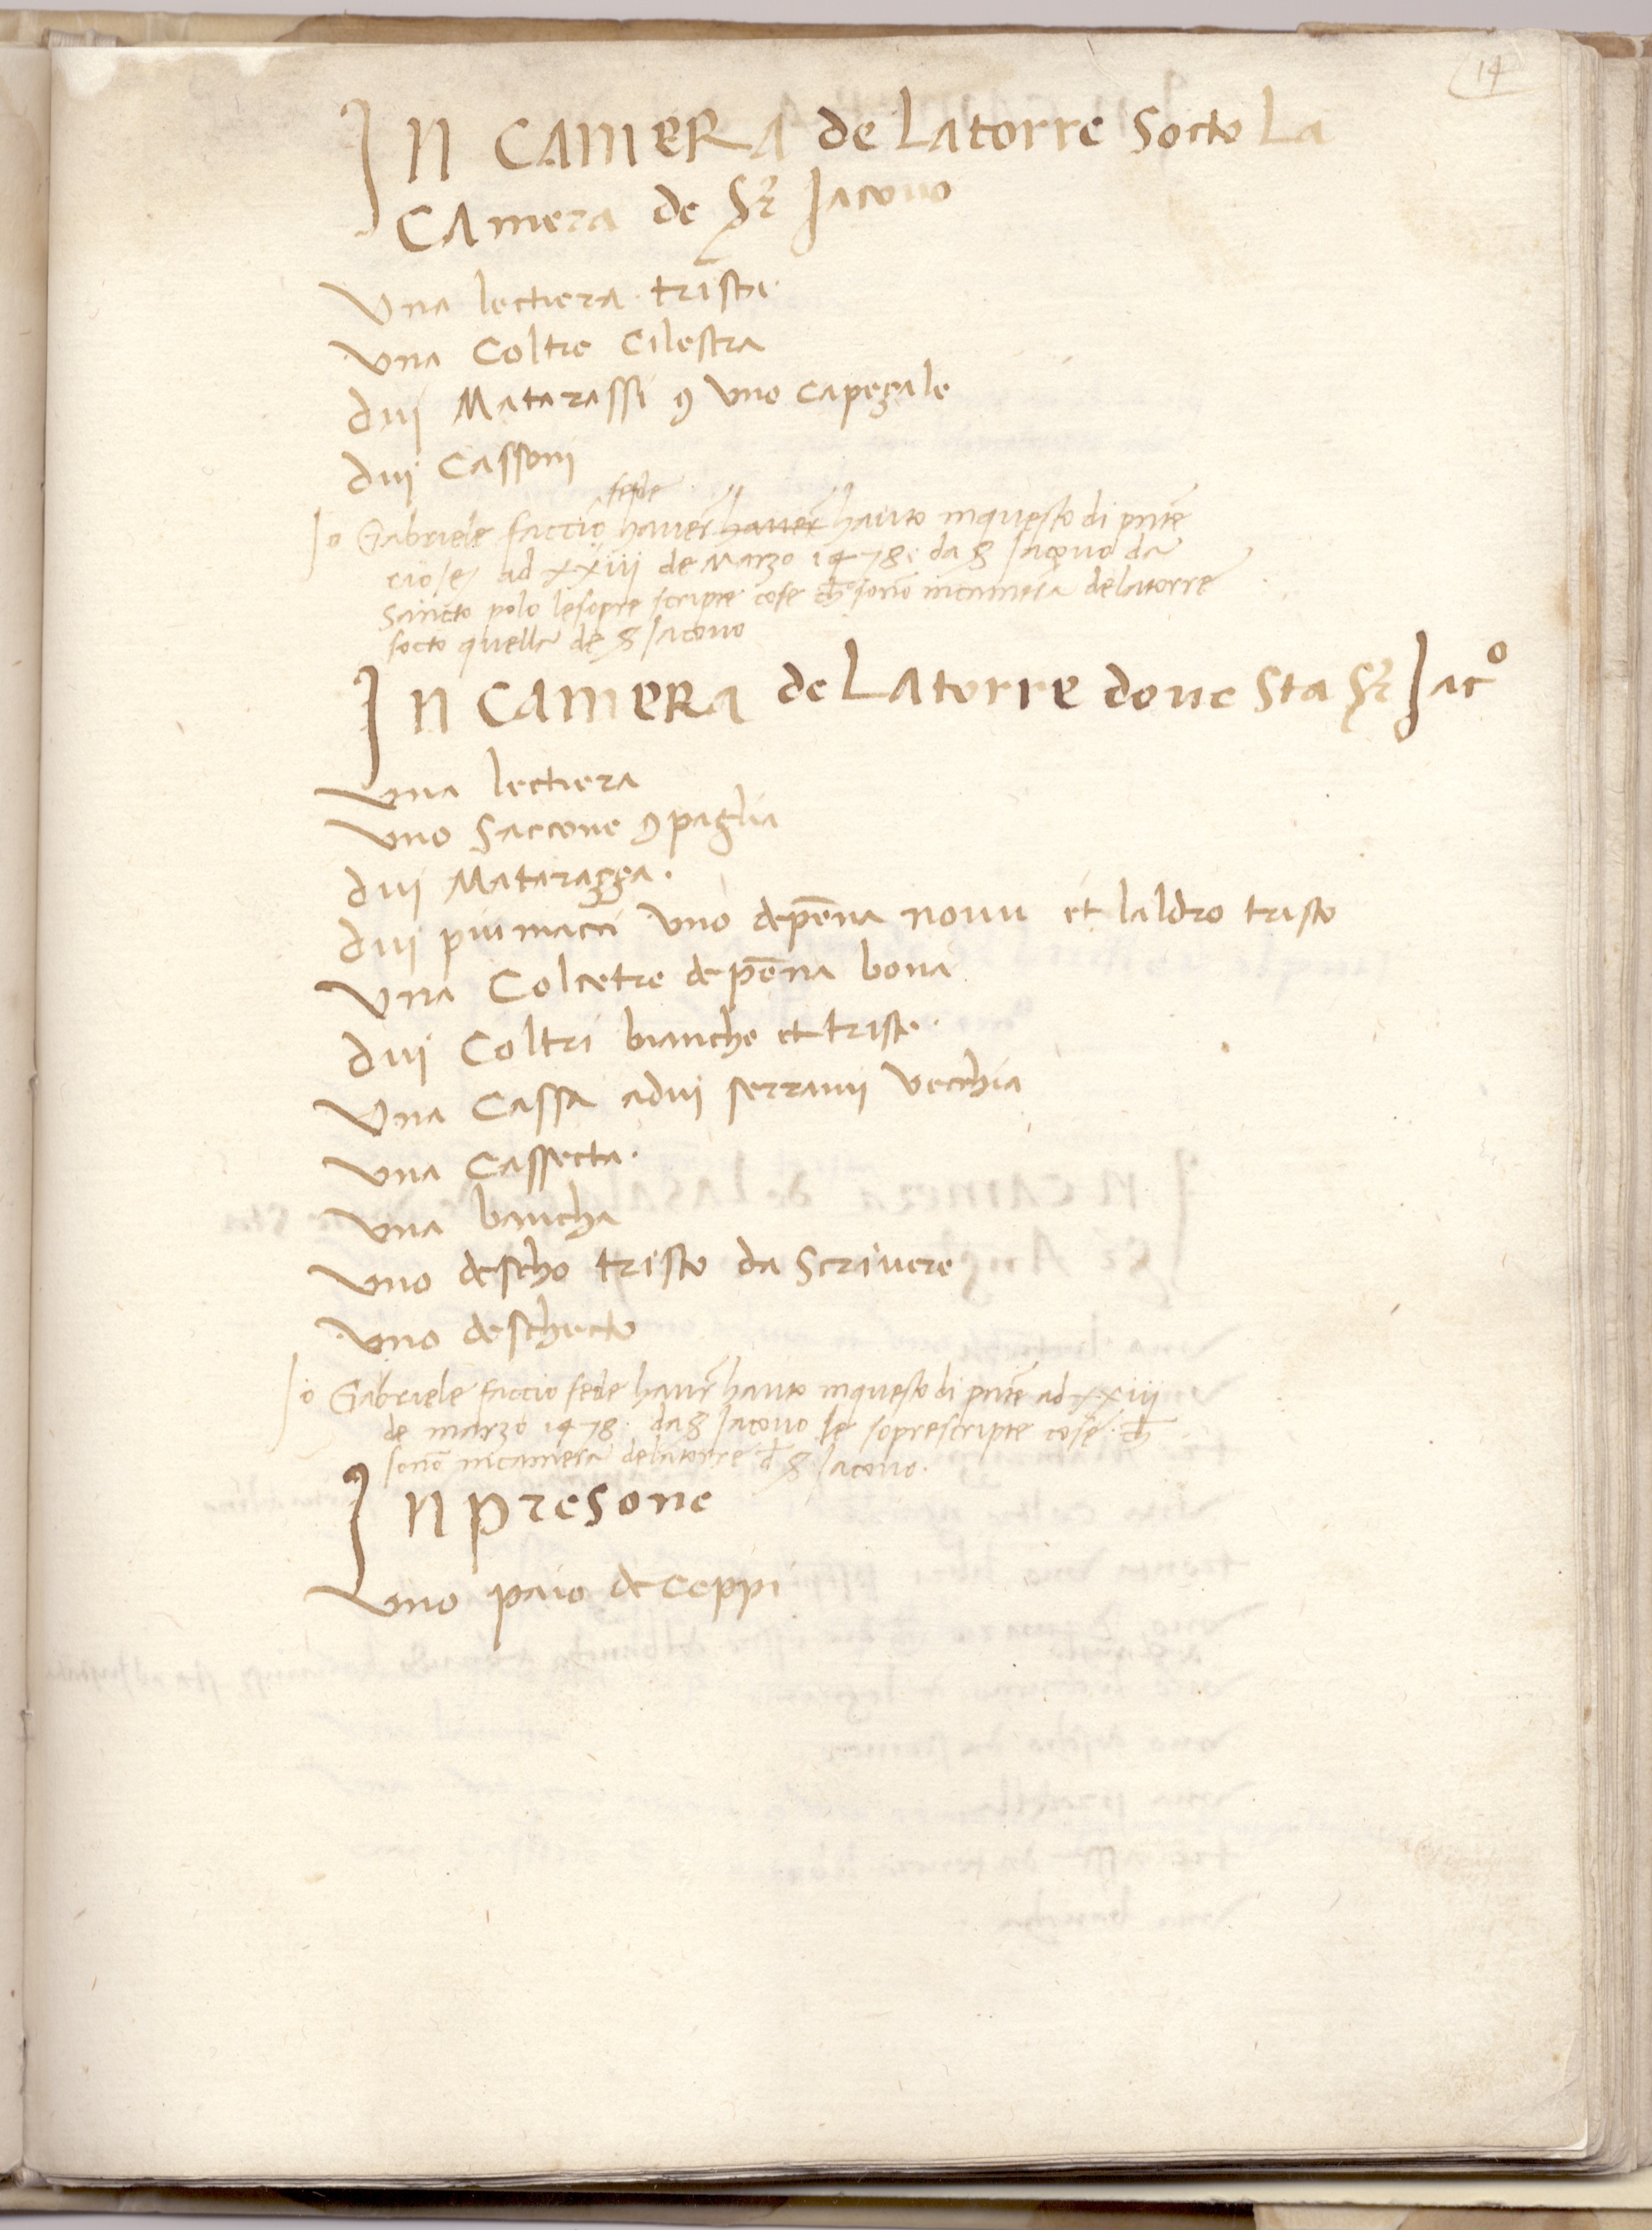 14
In CAMERA de Latorre Socto La
CAmera de Sr Iacouo
Vna lectiera trista
Vna Coltre Cilestra
duj Matarassi ꝯ Vno capezale
duj Cassoni
fede
Io Gabriele faccio hauer hauer hauto inquesto di pnte
cioe ad xxiiij de Marzo 1478 da S Iacouo da
Sancto polo lesopre scripte cose ch sono incamera delatorre
socto quella de S Iacouo
In CAMERA de LAtorre doue Sta Sr Iac°
Vna lectiera
Vno Saccone ꝯ paglia
duj Matarazza.
duj piumacci Vno de pēna nouu et laldro tristo
Vna Colcetre de pēna bona
duj Coltri bianche et triste.
Vna Cassa aduj serrami Vecchia
Vna Cassecta.
Vna bancha
Vno descho tristo da Scriuere
Vno deschecto
Io Gabriele faccio fede hauer hauto inquesto di pnte ad xxiiij
de marzo 1478. da S Iacouo le soprescripte cose. ch
sono incamera delatorre d S Iacouo.
In presone
Vno paio de Ceppi